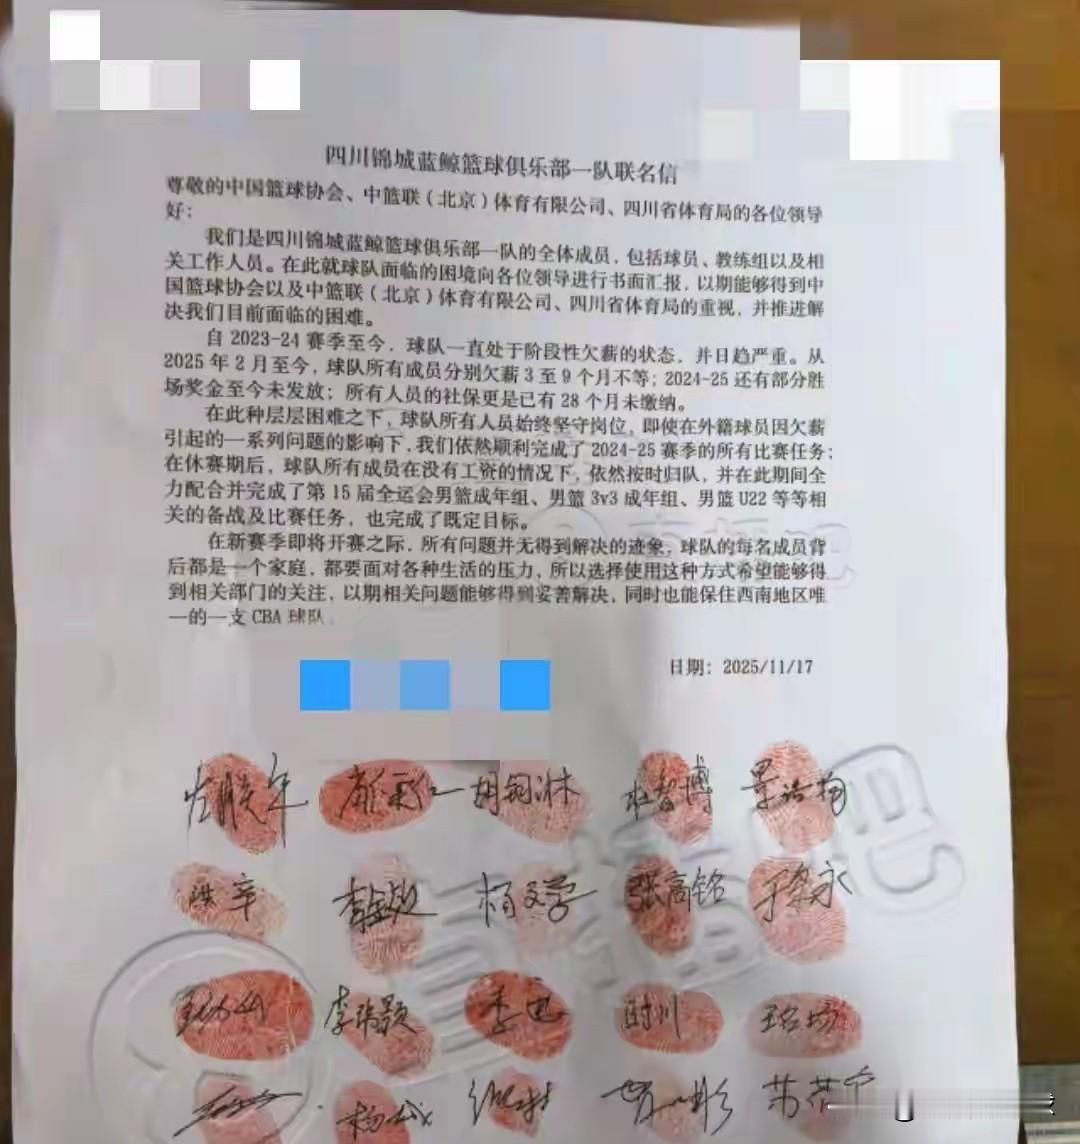 四川锦城蓝鲸篮球俱乐部一队联名信
尊敬的中国篮球协会、中篮联（北京）体育有限公司、四川省体育局的各位领导
好：
我们是四川锦城蓝鲸篮球俱乐部一队的全体成员，包括球员、教练组以及相
关工作人员。在此就球队面临的困境向各位领导进行书面汇报，以期能够得到中
国篮球协会以及中篮联（北京）体育有限公司、四川省体育局的重视，并推进解
决我们目前面临的困难。
自 2023-24 赛季至今，球队一直处于阶段性欠薪的状态，并日趋严重。从
2025 年 2 月至今，球队所有成员分别欠薪 3 至 9 个月不等；2024-25 还有部分胜
场奖金至今未发放；所有人员的社保更是已有 28 个月未缴纳。
在此种层层困难之下，球队所有人员始终坚守岗位，即使在外籍球员因欠薪
引起的一系列问题的影响下，我们依然顺利完成了 2024-25 赛季的所有比赛任务；
在休赛期后，球队所有成员在没有工资的情况下，依然按时归队，并在此期间全
力配合并完成了第 15 届全运会男篮成年组、男篮 3v3 成年组、男篮 U22 等等相
关的备战及比赛任务，也完成了既定目标。
在新赛季即将开赛之际，所有问题并无得到解决的迹象，球队的每名成员背
后都是一个家庭，都要面对各种生活的压力，所以选择使用这种方式希望能够得
到相关部门的关注，以期相关问题能够得到妥善解决，同时也能保住西南地区唯
一的一支 CBA 球队.
日期：2025/11/17
左朕年 胡钧淋 杜智博 景浩杨
洪宇 杨文学 张高铭
李玮颢 季迅
直播吧